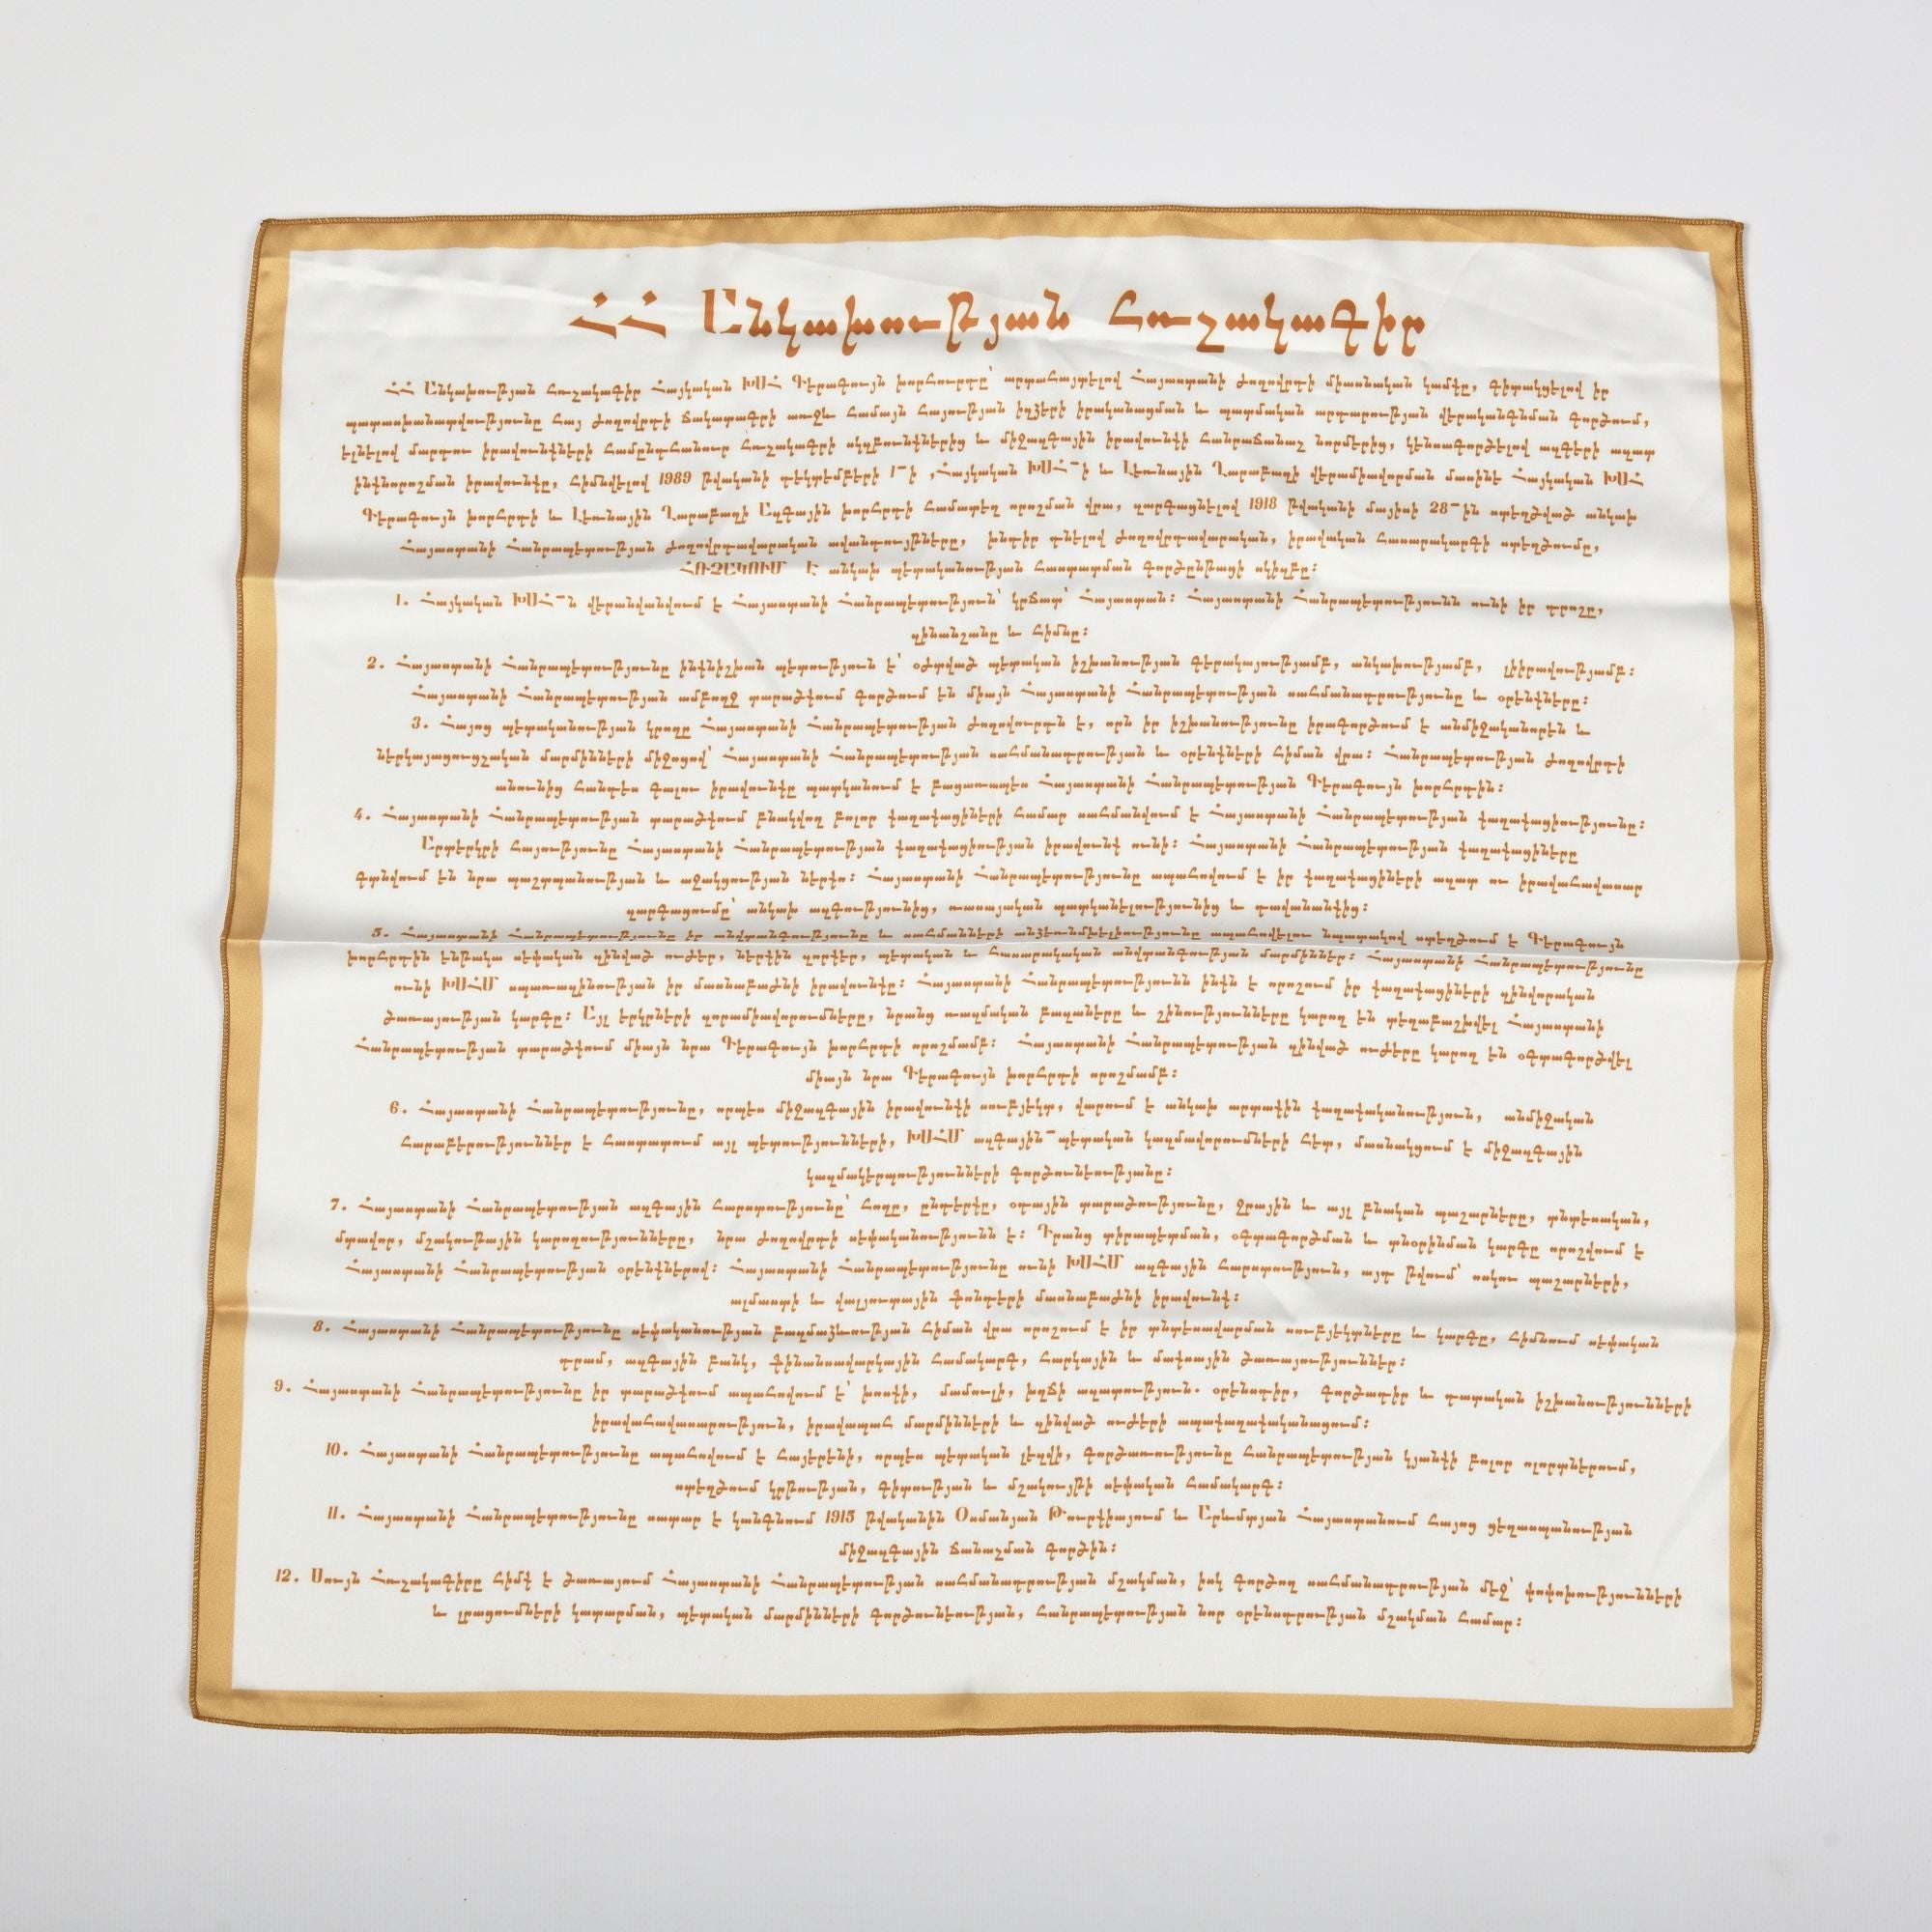 ՀՀ Անկախության Հռչակագիր
ՀՀ Անկախության Հռչակագիր Հայկական ԽՍՀ Գերագույն խորհուրդը՝ արտահայտելով Հայաստանի ժողովրդի միասնական կամքը, գիտակցելով իր
պատասխանատվությունը հայ ժողովրդի ճակատագրի առջև համայն հայության իղձերի իրականացման և պատմական արդարության վերականգնման գործում,
ելնելով մարդու իրավունքների համընդհանուր հռչակագրի սկզբունքներից և միջազգային իրավունքի հանրաճանաչ նորմերից, կենսագործելով ազգերի ազատ
ինքնորոշման իրավունքը, հիմնվելով 1989 թվականի դեկտեմբերի 1-ի ,Հայկական ԽՍՀ-ի և Լեռնային Ղարաբաղի վերամիավորման մասինե Հայկական ԽՍՀ
Գերագույն խորհրդի և Լեռնային Ղարաբաղի Ազգային խորհրդի համատեղ որոշման վրա, զարգացնելով 1918 թվականի մայիսի 28-ին ստեղծված անկախ
Հայաստանի Հանրապետության ժողովրդավարական ավանդույթները, խնդիր դնելով ժողովրդավարական, իրավական հասարակարգի ստեղծումը,
ՀՌՉԱԿՈՒՄ Է անկախ պետականության հաստատման գործընթացի սկիզբը:
1. Հայկական ԽՍՀ-ն վերանվանվում է Հայաստանի Հանրապետություն՝ կրճատ՝ Հայաստան: Հայաստանի Հանրապետությունն ունի իր դրոշը,
զինանշանը և հիմնը:
2. Հայաստանի Հանրապետությունը ինքնիշխան պետություն է՝ օժտված պետական իշխանության գերակայությամբ, անկախությամբ, լիիրավությամբ:
Հայաստանի Հանրապետության ամբողջ տարածքում գործում են միայն Հայաստանի Հանրապետության սահմանադրությունը և օրենքները:
3. Հայոց պետականության կրողը Հայաստանի Հանրապետության ժողովուրդն է, որն իր իշխանությունը իրագործում է անմիջականորեն և
ներկայացուցչական մարմինների միջոցով՝ Հայաստանի Հանրապետության սահմանադրության և օրենքների հիման վրա: Հանրապետության ժողովրդի
անունից հանդես գալու իրավունքը պատկանում է բացառապես Հայաստանի Հանրապետության Գերագույն խորհրդին:
4. Հայաստանի Հանրապետության տարածքում բնակվող բոլոր քաղաքացիների համար սահմանվում է Հայաստանի Հանրապետության քաղաքացիությունը:
Արտերկրի հայությունը Հայաստանի Հանրապետության քաղաքացիության իրավունք ունի: Հայաստանի Հանրապետության քաղաքացիները
գտնվում են նրա պաշտպանության և աջակցության ներքո: Հայաստանի Հանրապետությունը ապահովում է իր քաղաքացիների ազատ ու իրավահավասար
զարգացումը՝ անկախ ազգությունից, ռասայական պատկանելությունից և դավանանքից:
5. Հայաստանի Հանրապետությունը իր անվտանգությունը և սահմանների անձեռնմխելիությունը ապահովելու նպատակով ստեղծում է Գերագույն
խորհրդին ենթակա սեփական զինված ուժեր, ներքին զորքեր, պետական և հասարակական անվտանգության մարմիններ: Հայաստանի Հանրապետությունը
ունի ԽՍՀՄ սպառազինության իր մասնաբաժնի իրավունքը: Հայաստանի Հանրապետությունն ինքն է որոշում իր քաղաքացիների զինվորական
ծառայության կարգը: Այլ երկրների զորամիավորումները, նրանց ռազմական բազաները և շինությունները կարող են տեղաբաշխվել Հայաստանի
Հանրապետության տարածքում միայն նրա Գերագույն խորհրդի որոշմամբ: Հայաստանի Հանրապետության զինված ուժերը կարող են օգտագործվել
միայն նրա Գերագույն խորհրդի որոշմամբ:
6. Հայաստանի Հանրապետությունը, որպես միջազգային իրավունքի սուբյեկտ, վարում է անկախ արտաքին քաղաքականություն, անմիջական
հարաբերություններ է հաստատում այլ պետությունների, ԽՍՀՄ ազգային-պետական կազմավորումների հետ, մասնակցում է միջազգային
կազմակերպությունների գործունեությանը:
7. Հայաստանի Հանրապետության ազգային հարստությունը՝ հողը, ընդերքը, օդային տարածությունը, ջրային և այլ բնական պաշարները, տնտեսական,
մտավոր, մշակութային կարողությունները, նրա ժողովրդի սեփականությունն է: Դրանց տիրապետման, օգտագործման և տնօրինման կարգը որոշվում է
Հայաստանի Հանրապետության օրենքներով: Հայաստանի Հանրապետությունը ունի ԽՍՀՄ ազգային հարստության, այդ թվում՝ ոսկու պաշարների,
ալմաստի և վալյուտային ֆոնդերի մասնաբաժնի իրավունք:
8. Հայաստանի Հանրապետությունը սեփականության բազմաձևության հիման վրա որոշում է իր տնտեսավարման սուբյեկտները և կարգը, հիմնում սեփական
դրամ, ազգային բանկ, ֆինանսավարկային համակարգ, հարկային և մաքսային ծառայություններ:
9. Հայաստանի Հանրապետությունը իր տարածքում ապահովում է՝ խոսքի, մամուլի, խղճի ազատություն. օրենսդիր, գործադիր և դատական իշխանությունների
իրավահավասարություն, իրավապահ մարմինների և զինված ուժերի ապաքաղաքականացում:
10. Հայաստանի Հանրապետությունը ապահովում է հայերենի, որպես պետական լեզվի, գործառությունը հանրապետության կյանքի բոլոր ոլորտներում,
ստեղծում կրթության, գիտության և մշակույթի սեփական համակարգ:
11. Հայաստանի Հանրապետությունը սատար է կանգնում 1915 թվականին Օսմանյան Թուրքիայում և Արևմտյան Հայաստանում Հայոց ցեղասպանության
միջազգային ճանաչման գործին:
12. Սույն Հռչակագիրը հիմք է ծառայում Հայաստանի Հանրապետության սահմանադրության մշակման, իսկ գործող սահմանադրության մեջ՝ փոփոխությունների
և լրացումների կատարման, պետական մարմինների գործունեության, հանրապետության նոր օրենսդրության մշակման համար: